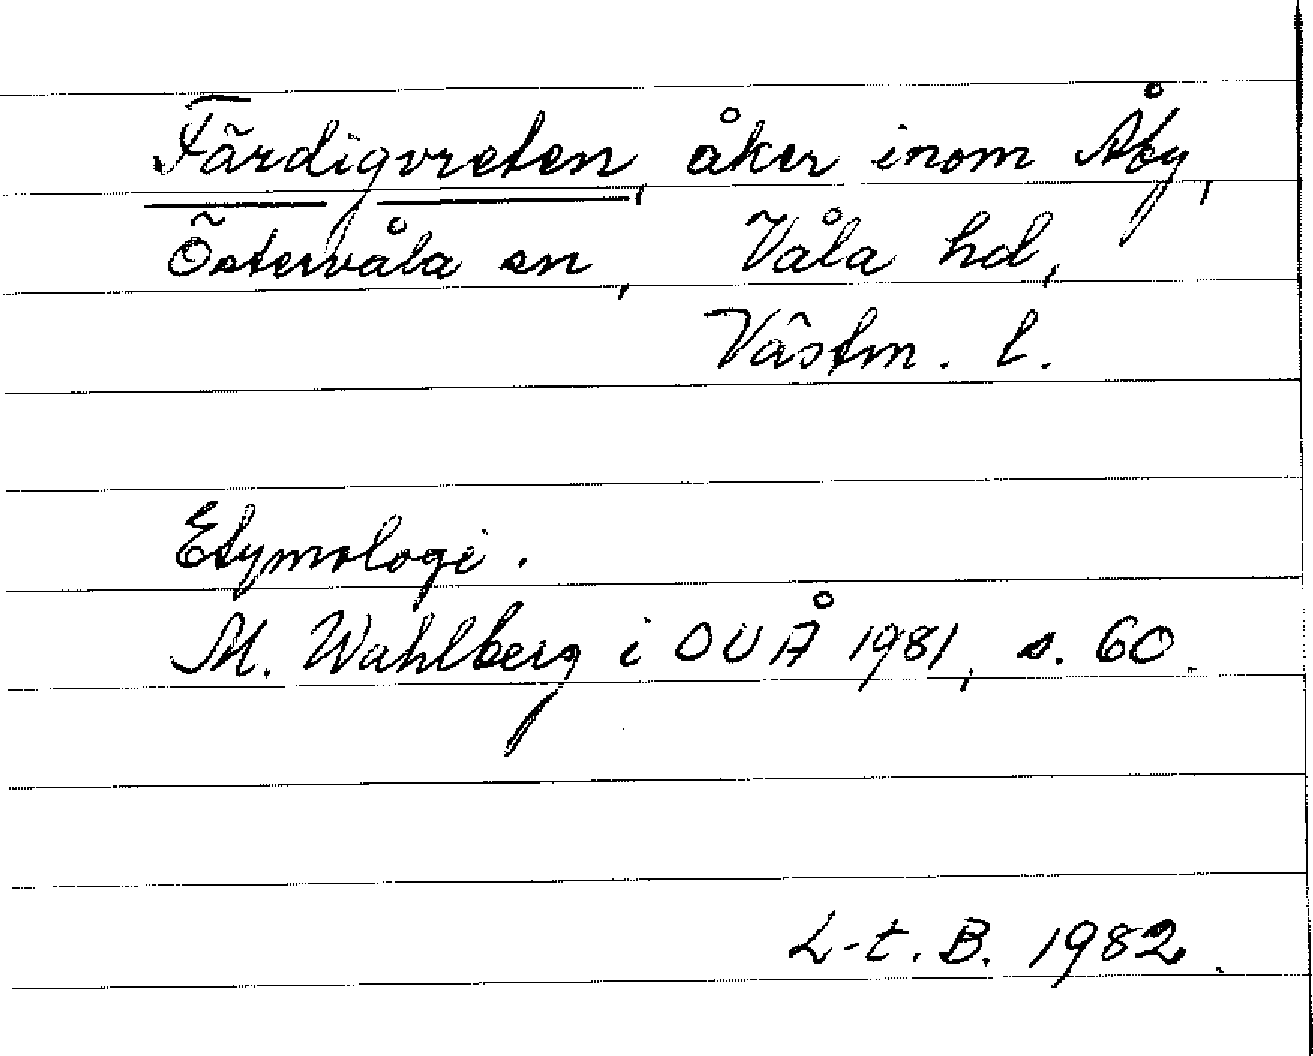 Färdigvreten, åker inom Åby,
Östervåla sn, Våla hd,
Västm. l.
Etymologi.
M. Wahlberg i OUÅ 1981, s. 60.
L-t. B. 1982.